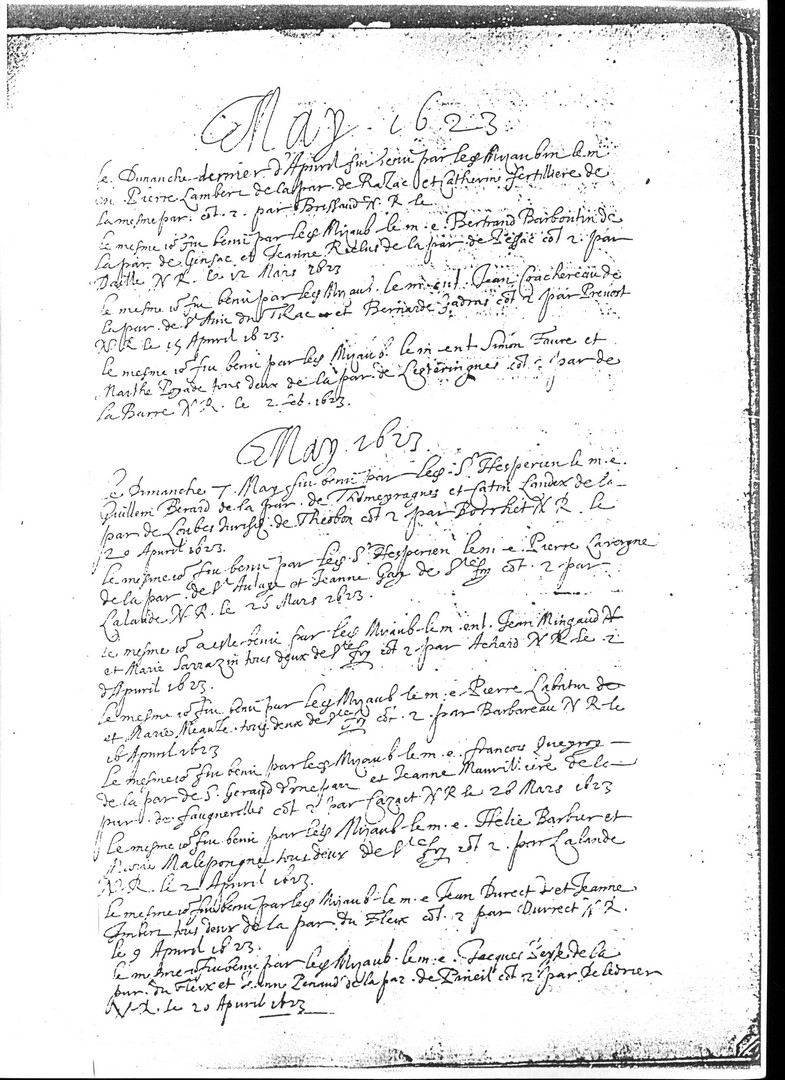 May. 1623
le Dimanche dernier d'Apvril fut beni par led Mizaubin le m
Pierre Lambert de la par. de Razac et Catherin fertilliere de
la mesme par. cot. 2. par Brissaud N. R. le
le mesme io fut beni par led Mizaub le m. e. Bertrand Barbontin de
la par. de Gensac et Jeanne Reclus de la par. de Pessac cot 2. par
Daille N R. le 12 Mars 1623
le mesme io fut beni par led Mizaub. le m. ent. Jean Coachereau de
la par. de St Avic du Tizac et Bernarde Jadras cot 2 par Prevost
N. R. le 15 Apvril 1623.
le mesme io fut beni par led Mizaub. le m ent Simon Faure et
Marthe tous deux de la par. de cot 2 par de
la Barre N. R. le 2. feb. 1623.
May. 1623.
le Dimanche 7. May fut beni par led. Sr Hesperien le m. e.
Guillem Berard de la par. de Thomeyragues et Caton Landix de la
par de Loubes Jurisd. de Theobon cot 2 par Borrhet N. R. le
20 Apvril 1623.
le mesme io fut beni par led. Sr Hesperien le m. e. Pierre Lavergne
de la par. de St Aulaye et Jeanne Gay de Ste foy cot. 2. par
Lalande N. R. le 26 Mars 1623.
le mesme io a este beni par led Mizaub. le m. ent. Jean Mingaud N
et Marie Sarrazin tous deux de Ste foy cot 2 par Achard N. R. le 2
d'Apvril 1623.
le mesme io fut beni par led Mizaub le m. e. Pierre Labatur de
et Marie Meauze. tous deux de Ste foy cot. 2. par Barbareau N R. le
16 Apvril 1623
le mesme io fut beni par led Mizaub. le m. e. francois Queyroy
de la par de S. Geraud et Jeanne de la
par. de faugnerolles cot 2 par Cazact N R le 28 Mars 1623
le mesme io fut beni par led Mizaub. le m. e. Helie Barbur et
Marie Malepongne tous deux de Ste foy cot 2. par Lalande
N. R. le 2 Apvril 1623.
le mesme io fut beni par led Mizaub. le m. e Jean Durect et Jeanne
Imbert tous deux de la par. du Fleix cot. 2 par Durrect N R.
le 9 Apvril 1623.
le mesme io fut beni par led Mizaub. le m. e. Jacques de la
par. du Fleix et Penaud de la par. de Pineil cot 2 par
N. R. le 20 Apvril 1623